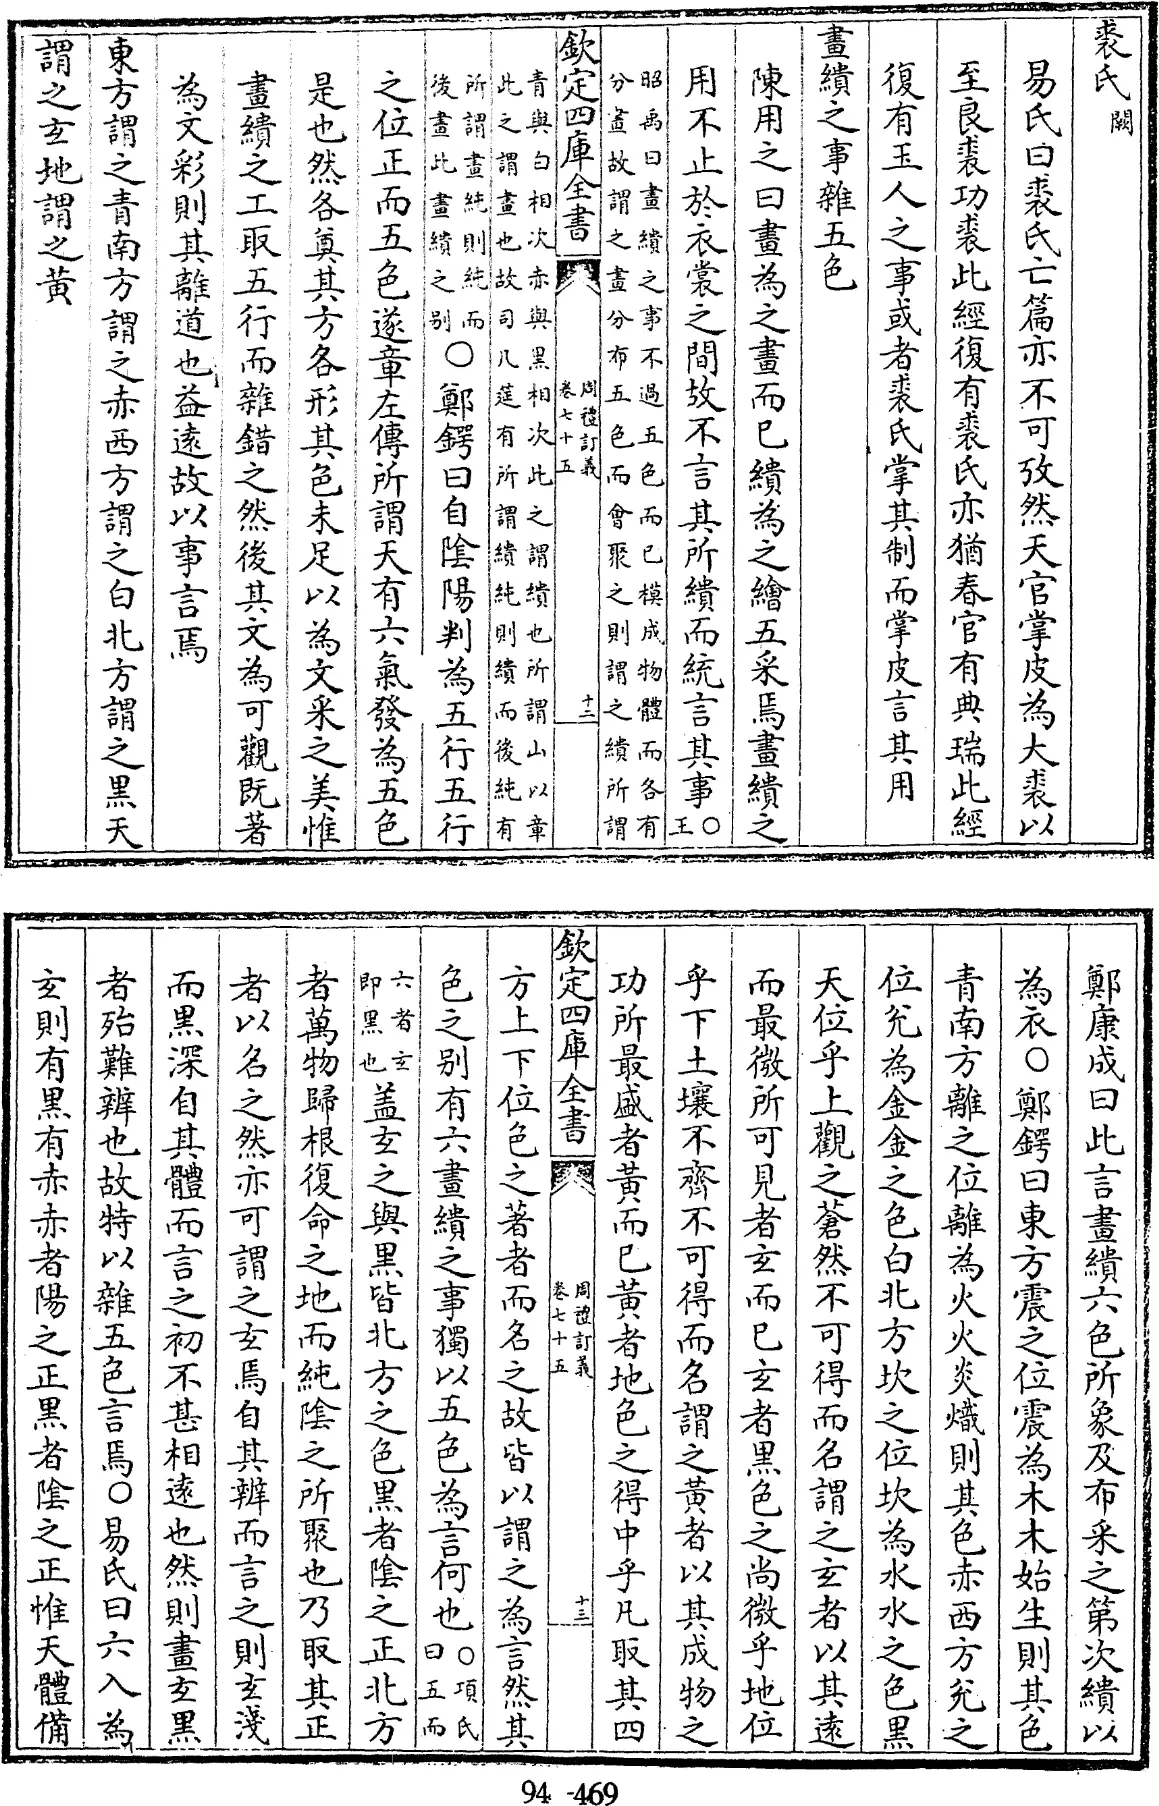 裘氏闕
易氏曰裘氏亡篇亦不可攷然天官掌皮為大裘以
至良裘功裘此經復有裘氏亦猶春官有典瑞此經
復有玉人之事或者裘氏掌其制而掌皮言其用
畫繢之事雜五色
陳用之曰畫為之畫而已繢為之繪五采焉畫繢之
用不止於衣裳之間故不言其所繢而統言其事〇王
昭禹曰畫繢之事不過五色而已模成物體而各有
分畫故謂之畫分布五色而會聚之則謂之繢所謂
欽定四庫全書
周禮訂義
卷七十五
十二
青與白相次赤與黑相次此之謂繢也所謂山以章
此之謂畫也故司几筵有所謂繢純則繢而後純有
所謂畫純則純而
後畫此畫繢之别
〇鄭鍔曰自陰陽判為五行五行
之位正而五色遂章左傳所謂天有六氣發為五色
是也然各奠其方各形其色未足以為文采之美惟
畫繢之工取五行而雜錯之然後其文為可觀既著
為文彩則其離道也益逺故以事言焉
東方謂之青南方謂之赤西方謂之白北方謂之黑天
謂之玄地謂之黃
鄭康成曰此言畫繢六色所象及布采之第次繢以
為衣〇鄭鍔曰東方震之位震為木木始生則其色
青南方離之位離為火火炎熾則其色赤西方兊之
位兊為金金之色白北方坎之位坎為水水之色黑
天位乎上觀之蒼然不可得而名謂之玄者以其逺
而最微所可見者玄而已玄者黑色之尚微乎地位
乎下土壤不齊不可得而名謂之黃者以其成物之
功所最盛者黃而已黃者地色之得中乎凡取其四
欽定四庫全書
周禮訂義
卷七十五
十三
方上下位色之著者而名之故皆以謂之為言然其
色之别有六畫繢之事獨以五色為言何也〇項氏
曰五而
六者玄
即黑也
盖玄之與黑皆北方之色黑者陰之正北方
者萬物歸根復命之地而純陰之所聚也乃取其正
者以名之然亦可謂之玄焉自其辨而言之則玄淺
而黑深自其體而言之初不甚相逺也然則畫玄黑
者殆難辨也故特以雜五色言焉〇易氏曰六入為
玄則有黑有赤赤者陽之正黑者陰之正惟天體備
94-469